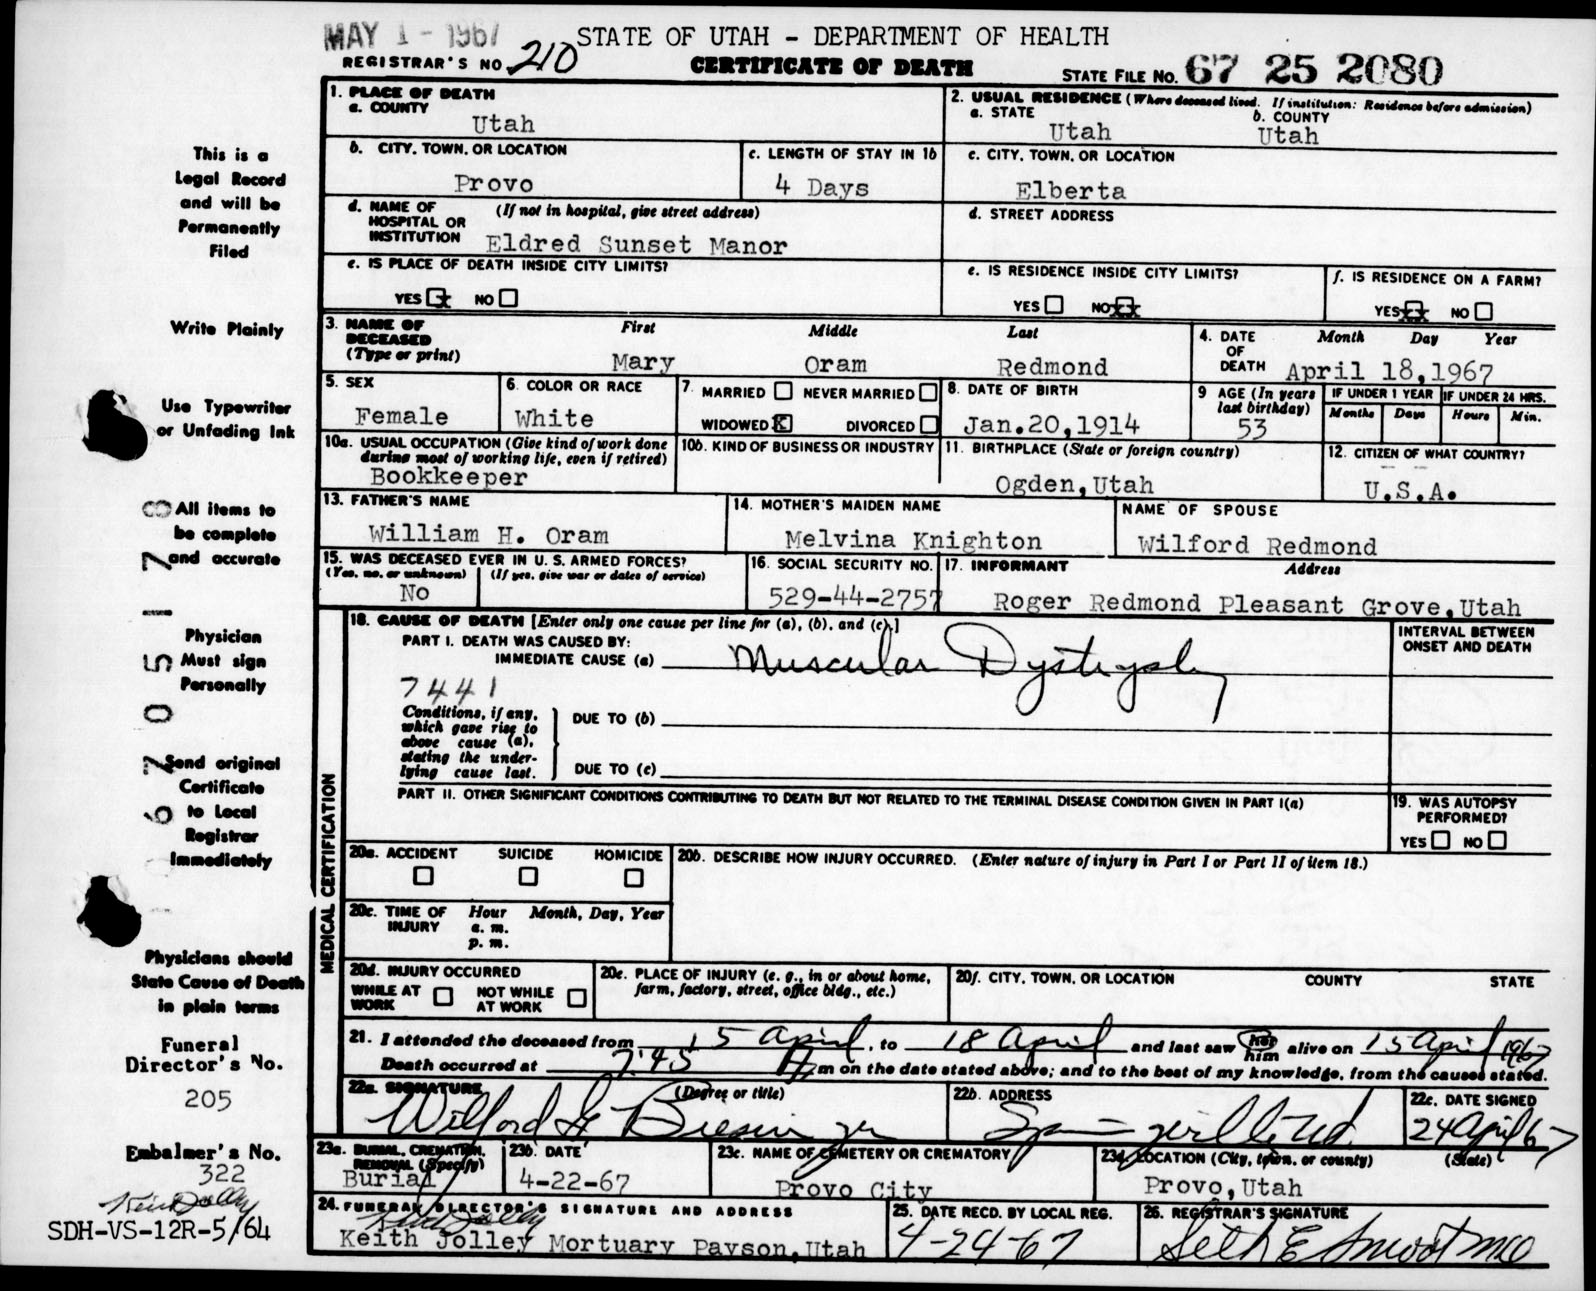 MAY 1 - 1967
STATE OF UTAH - DEPARTMENT OF HEALTH
REGISTRAR'S NO. 210
CERTIFICATE OF DEATH
STATE FILE NO. 67 25 2080
1. PLACE OF DEATH
a. COUNTY
Utah
2. USUAL RESIDENCE (Where deceased lived. If institution: Residence before admission)
a. STATE
Utah
b. COUNTY
Utah
b. CITY, TOWN, OR LOCATION
Provo
c. LENGTH OF STAY IN 1b
4 Days
c. CITY, TOWN, OR LOCATION
Elberta
d. NAME OF HOSPITAL OR INSTITUTION
(If not in hospital, give street address)
Eldred Sunset Manor
d. STREET ADDRESS
e. IS PLACE OF DEATH INSIDE CITY LIMITS?
YES x NO
e. IS RESIDENCE INSIDE CITY LIMITS?
YES NO xx
f. IS RESIDENCE ON A FARM?
YES xx NO
3. NAME OF DECEASED
(Type or print)
First
Middle
Last
Mary
Oram
Redmond
4. DATE OF DEATH
Month Day Year
April 18,1967
5. SEX
Female
6. COLOR OR RACE
White
7. MARRIED NEVER MARRIED
WIDOWED X DIVORCED
8. DATE OF BIRTH
Jan.20,1914
9 AGE (In years last birthday)
53
IF UNDER 1 YEAR
Months Days
IF UNDER 24 HRS.
Hours Min.
10a. USUAL OCCUPATION (Give kind of work done during most of working life, even if retired)
Bookkeeper
10b. KIND OF BUSINESS OR INDUSTRY
11. BIRTHPLACE (State or foreign country)
Ogden,Utah
12. CITIZEN OF WHAT COUNTRY?
U.S.A.
13. FATHER'S NAME
William H. Oram
14. MOTHER'S MAIDEN NAME
Melvina Knighton
NAME OF SPOUSE
Wilford Redmond
15. WAS DECEASED EVER IN U. S. ARMED FORCES?
(Yes, no, or unknown) (If yes, give war or dates of service)
No
16. SOCIAL SECURITY NO.
529-44-2757
17. INFORMANT
Address
Roger Redmond Pleasant Grove,Utah
18. CAUSE OF DEATH [Enter only one cause per line for (a), (b), and (c).]
PART I. DEATH WAS CAUSED BY:
IMMEDIATE CAUSE (a) Muscular Dystrophy
7441
Conditions, if any, which gave rise to above cause (a), stating the underlying cause last.
DUE TO (b)
DUE TO (c)
INTERVAL BETWEEN ONSET AND DEATH
PART II. OTHER SIGNIFICANT CONDITIONS CONTRIBUTING TO DEATH BUT NOT RELATED TO THE TERMINAL DISEASE CONDITION GIVEN IN PART I(a)
19. WAS AUTOPSY PERFORMED?
YES NO
MEDICAL CERTIFICATION
20a. ACCIDENT SUICIDE HOMICIDE
20b. DESCRIBE HOW INJURY OCCURRED. (Enter nature of injury in Part I or Part II of item 18.)
20c. TIME OF INJURY
Hour Month, Day, Year
a. m.
p. m.
20d. INJURY OCCURRED
WHILE AT WORK NOT WHILE AT WORK
20e. PLACE OF INJURY (e. g., in or about home, farm, factory, street, office bldg., etc.)
20f. CITY, TOWN, OR LOCATION COUNTY STATE
21. I attended the deceased from 15 April, to 18 April and last saw her him alive on 15 April 1967
Death occurred at 7:45 A m on the date stated above; and to the best of my knowledge, from the causes stated.
22a. SIGNATURE (Degree or title)
22b. ADDRESS
22c. DATE SIGNED
24 April 67
23a. BURIAL, CREMATION, REMOVAL (Specify)
Burial
23b. DATE
4-22-67
23c. NAME OF CEMETERY OR CREMATORY
Provo City
23d. LOCATION (City, town, or county) (State)
Provo,Utah
24. FUNERAL DIRECTOR'S SIGNATURE AND ADDRESS
Keith Jolley
Keith Jolley Mortuary Payson,Utah
25. DATE RECD. BY LOCAL REG.
4-24-67
26. REGISTRAR'S SIGNATURE
This is a
Legal Record
and will be
Permanently
Filed
Write Plainly
Use Typewriter
or Unfading Ink
All items to
be complete
and accurate
Physician
Must sign
Personally
Send original
Certificate
to Local
Registrar
Immediately
Physicians should
State Cause of Death
in plain terms
Funeral
Director's No.
205
Embalmer's No.
322
Keith Jolley
SDH-VS-12R-5/64
67 05178